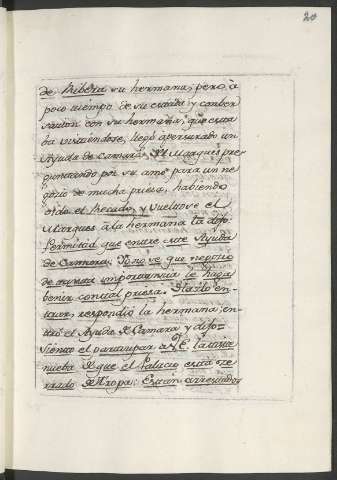 20
de Ribera su hermana; pero à
poco tiempo de su entrada y conver
sacion con su hermana, que esta
ba vistiendose, llegó apresurado un
Ayuda de Camara del Marqués pre
guntando por su amo para un ne
gocio de mucha priesa, habiendo
oido el recado, y vueltose el
Marques à la hermana la dijo
Permitid que entre este Ayuda
de Camara: Yo no se que negocio
de tanta importancia le haga
benir con tal priesa. Darle en-
trar, respondió la hermana; en-
tró el Ayuda de Camara y dijo=
Siento el participar a V.E. la mala
nueba de que el Palacio está cer
cado de tropa: Estan arrestados